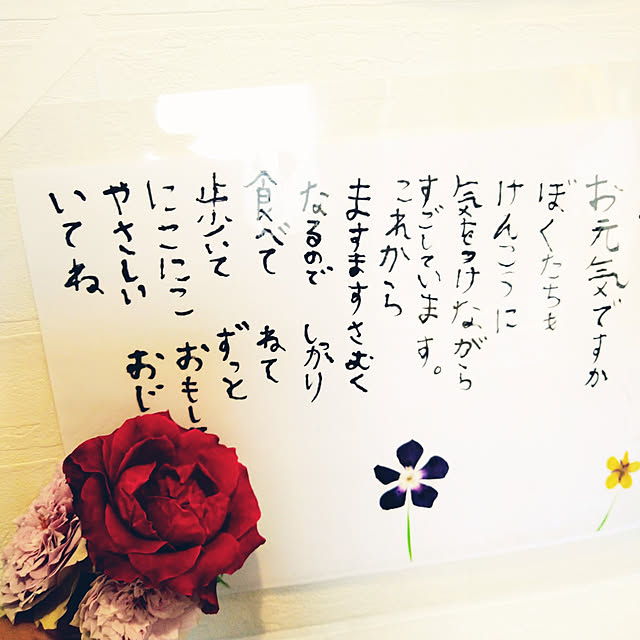 お元気ですか
ぼくたちも
けんこうに
気をつけながら
すごしています。
これから
ますますさむく
なるので しっかり
食べて ねて
歩いて ずっと
にこにこ おもし
やさしい おじ
いてね